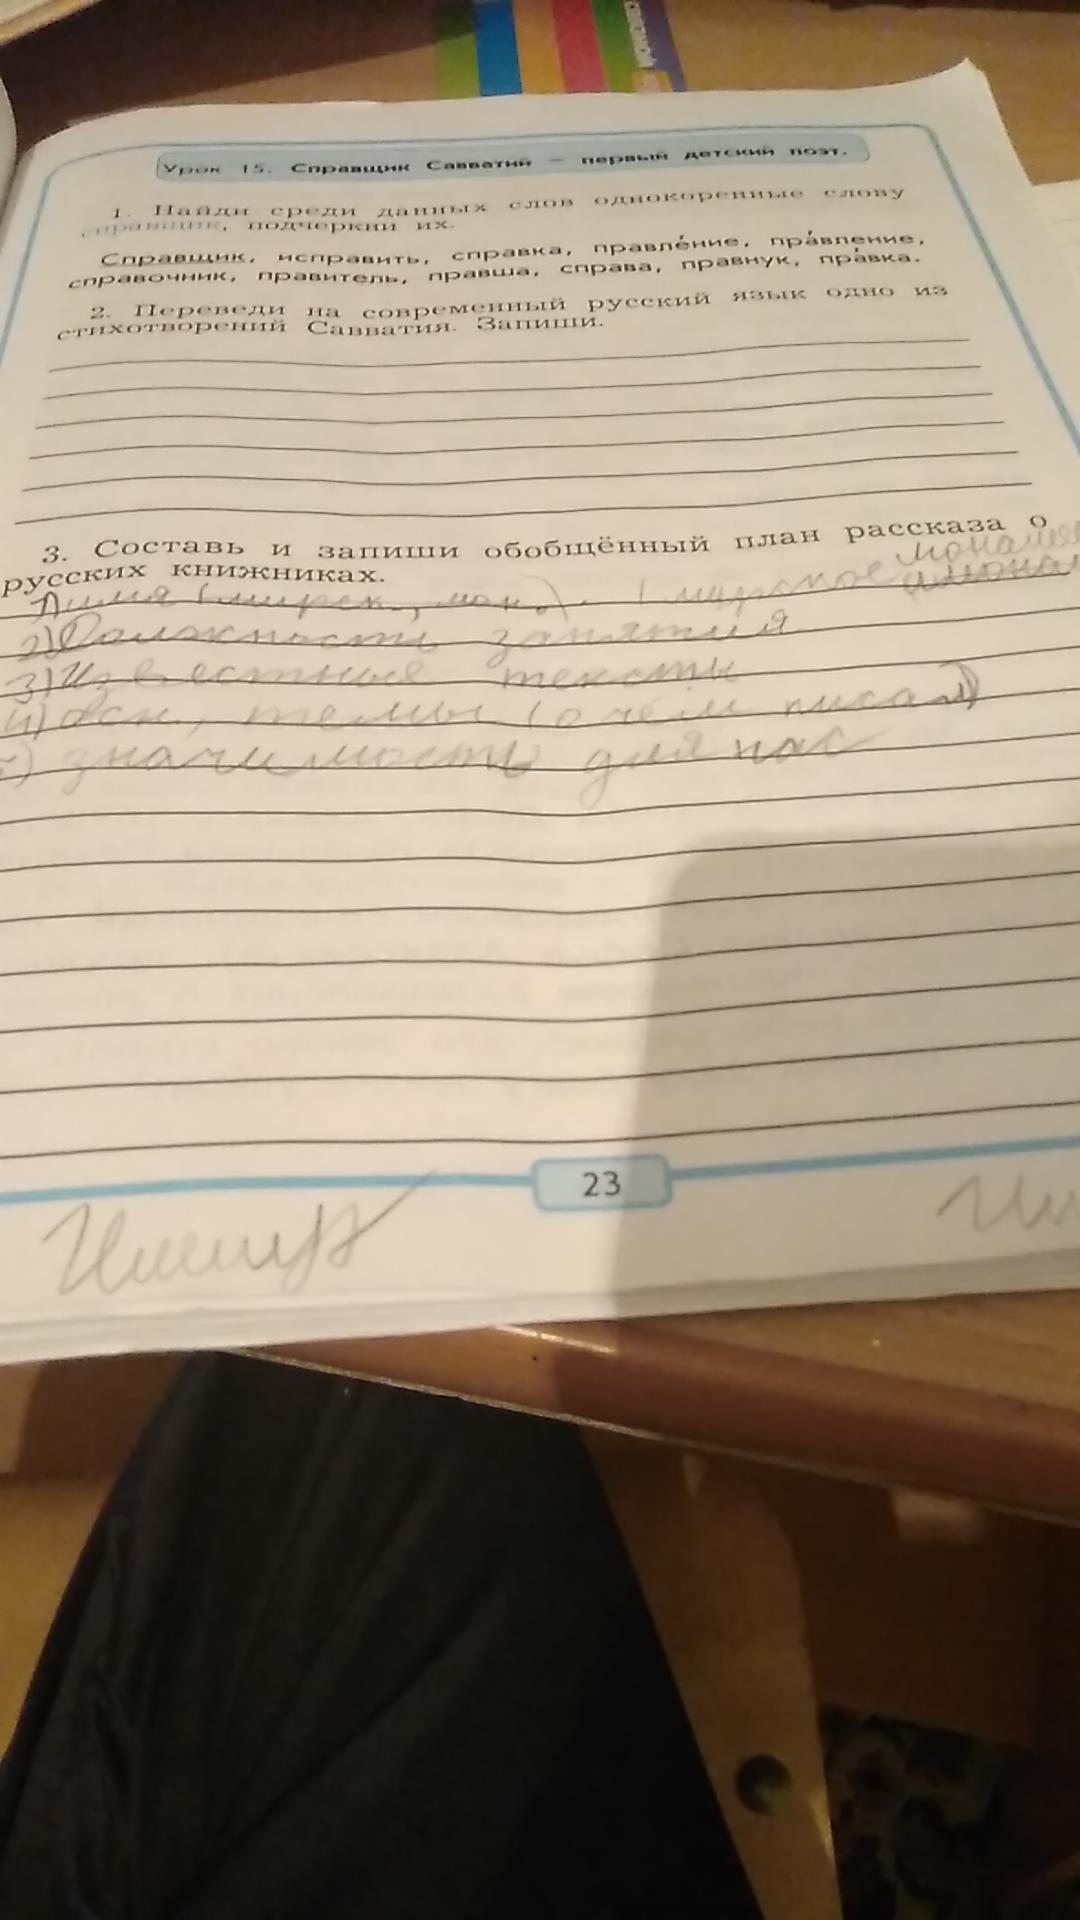 Урок 15. Справщик Савватий — первый детский поэт.
1. Найди среди данных слов однокоренные слову
справщик, подчеркни их.
Справщик, исправить, справка, правле́ние, пра́вление,
справочник, правитель, правша, справа, правнук, пра́вка.
2. Переведи на современный русский язык одно из
стихотворений Савватия. Запиши.
3. Составь и запиши обобщённый план рассказа о
русских книжниках.
1) имя (мирск., мон.). (мирское
2) Должность занятия
3) Известные тексты
4) осн., темы (о чём писал)
5) значимость для нас
23